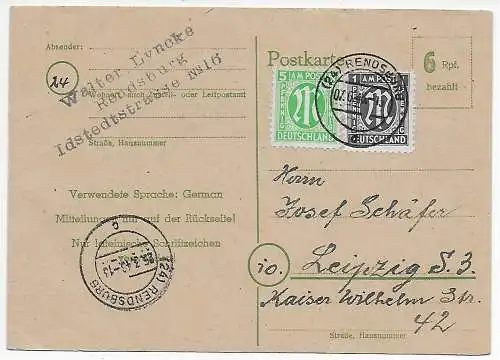 Absender:
Walter Lyncke
Rendsburg
Idstedtstrasse No16
24
Wohnort, auch Zustell- oder Leitpostamt
Straße, Hausnummer
Verwendete Sprache: German
Mitteilungen nur auf der Rückseite!
Nur lateinische Schriftzeichen
(24) RENDSBURG
c
Postkarte
6 Rpf.
bezahlt
5 AM POST
PFENNIG
DEUTSCHLAND
1 AM POST
PFENNIG
DEUTSCHLAND
(24) RENDSBURG
Herrn
Josef Schäfer
10. Leipzig S.3.
Kaiser Wilhelm Str.
42
Straße, Hausnummer